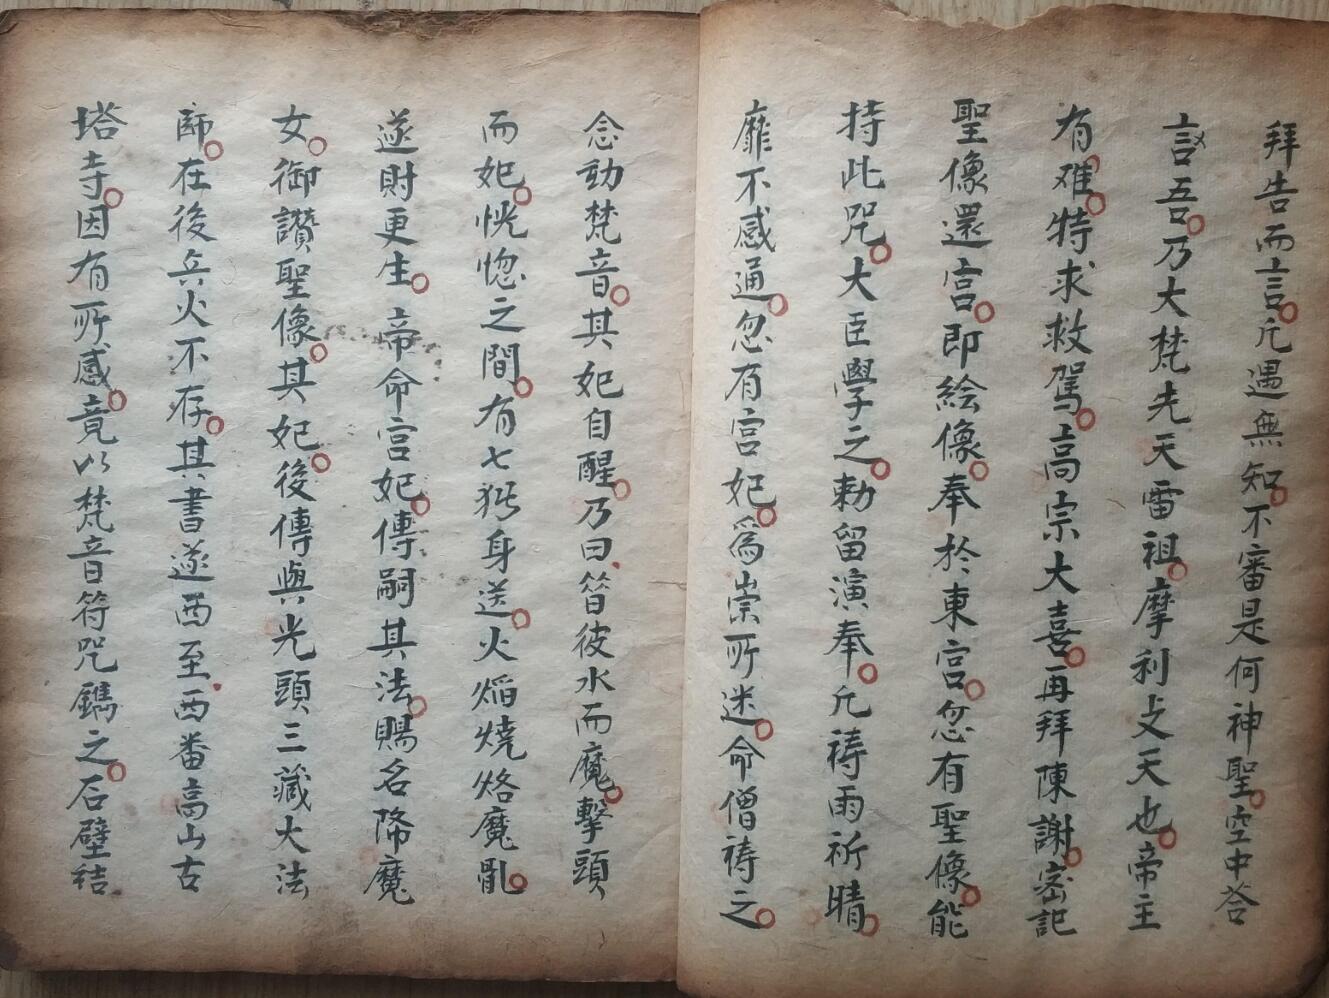 拜告而言凡遇無知不審是何神聖空中荅
言吾乃大梵先天雷祖摩利支天也帝主
有难特求救駕高宗大喜再拜陳謝密記
聖像還宫即绘像奉於東宫忽有聖像能
持此咒大臣學之勅留演奉凡祷雨祈晴
靡不感通忽有宫妃為崇所迷命僧祷之
念動梵音其妃自醒乃曰昝彼水而魔擊頭
而妃恍惚之間有七猪身送火焰燒烙魔
遂財更生帝命宫妃傳嗣其法賜名降魔
女御讃聖像其妃後傳與光頭三藏大法
師在後兵火不存其書遂西至西番高山古
塔寺因有所感竟以梵音符咒鐫之石壁